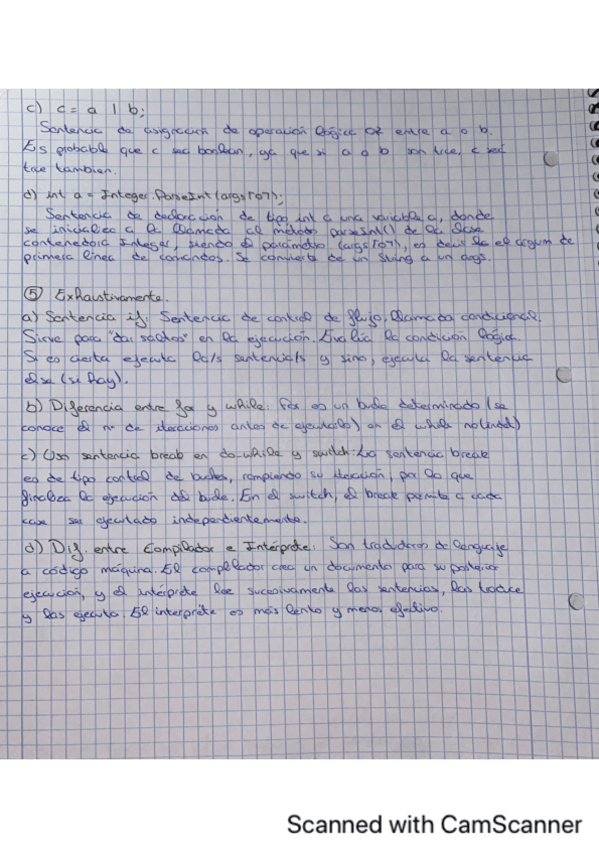 c) c = a | b;
Sentencia de asignación de operación lógica OR entre a o b.
Es probable que c sea boolean, ya que si a o b son true, c será
true tambien.
d) int a = Integer.ParseInt (args[0]);
Sentencia de declaración de tipo int a una variable a, donde
se inicializa a la llamada al método parseInt() de la clase
contenedora Integer, siendo el parámetro (args[0]), es decir la el argum de
primera línea de comandos. Se convierte de un String a un args.
⑤ Exhaustivamente.
a) Sentencia if: Sentencia de control de flujo, llamada condicional.
Sirve para "dar saltos" en la ejecución. Evalúa la condición lógica.
Si es cierta ejecuta la/s sentencia/s y sino, ejecuta la sentencia
else (si hay).
b) Diferencia entre for y while: For es un bucle determinado (se
conoce el nº de iteraciones antes de ejecutarlo) en el while no(indet)
c) Uso sentencia break en do-while y switch: La sentencia break
es de tipo control de bucles, rompiendo su iteración, por lo que
finaliza la ejecución del bucle. En el switch, el break permite a cada
case ser ejecutado independientemente.
d) Dif. entre Compilador e Intérprete: Son traductores de lenguaje
a código máquina. El compilador crea un documento para su posterior
ejecución, y el intérprete lee sucesivamente las sentencias, las traduce
y las ejecuta. El interpréte es más lento y menos efectivo.
Scanned with CamScanner